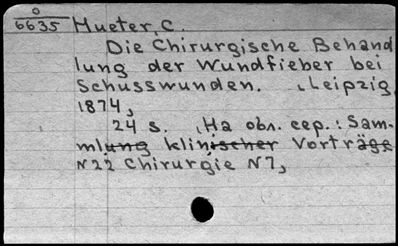 0
6635 Hueter, C.
Die Chirurgische Behand
lung der Wundfieber bei
Schusswunden. Leipzig,
1874,
24 s. На обл. сер.: Sam-
mlung klinischer Vorträge
N22 Chirurgie N7,